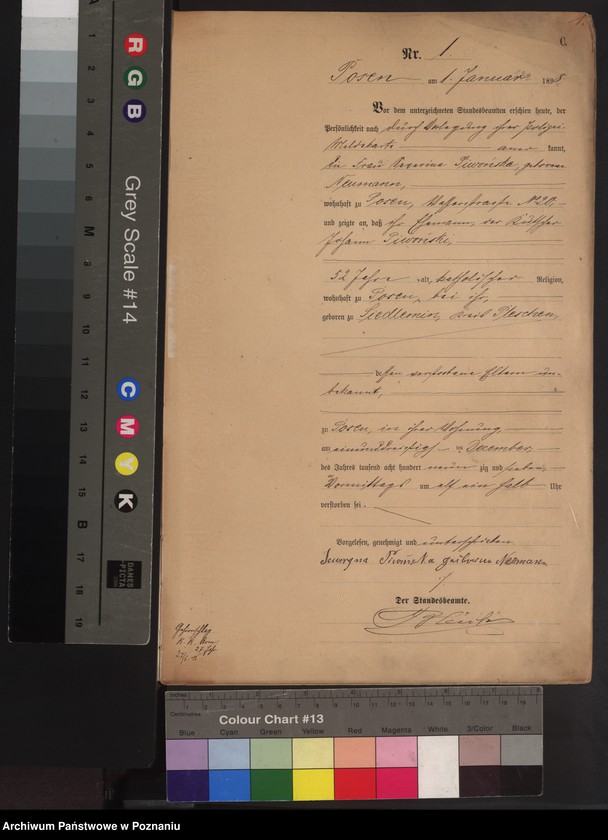 1.
C.
Nr. 1
Posen am 1. Januar 1898
Vor dem unterzeichneten Standesbeamten erschien heute, der
Persönlichkeit nach durch Vorlegung ihrer Polizei
Meldekarte aner kannt,
die Frau Severina Piwońska, geborene
Neumann,
wohnhaft zu Posen, Wasserstrasse N 20,
und zeigte an, daß ihr Ehemann, der
Johann Piwoński,
52 Jahre alt, katholischer Religion,
wohnhaft zu Posen, bei ihr,
geboren zu Siedlemin, Kreis Pleschen,
dessen verstorbene Eltern un-
bekannt,
zu Posen, in ihrer Wohnung,
am einunddreißig ten December
des Jahres tausend acht hundert neun zig und sieben,
Vormittags um elf ein halb Uhr
verstorben sei.
Vorgelesen, genehmigt und unterschrieben
Seweryna Piwońska geborene Neumann
Der Standesbeamte.
Grey Scale #14
R
G
B
C
M
Y
K
A
1
2
3
4
5
6
M
8
9
10
11
12
13
14
15
B
17
18
19
DANES
-PICTA
Inches
Centimetres
Colour Chart #13
Blue Cyan Green Yellow Red Magenta White 3/Color Black
Archiwum Państwowe w Poznaniu